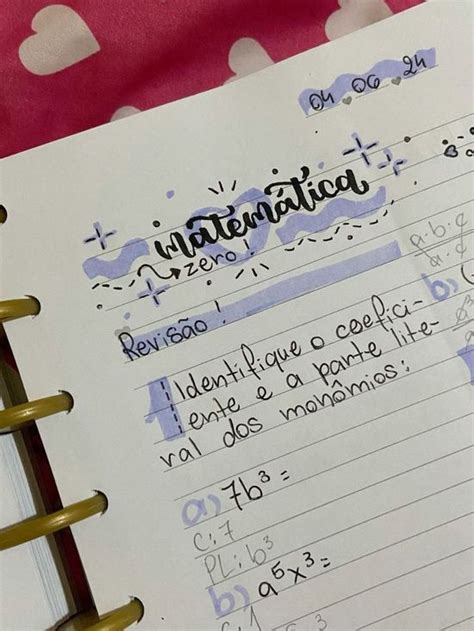 04 06 24
matemática
zero!
Revisão!
1 Identifique o coefici-
ente e a parte lite-
ral dos monômios:
a) 7b³=
C: 7
PL: b³
b) a⁵x³=
C: 1
a.b.c
a.c
b)